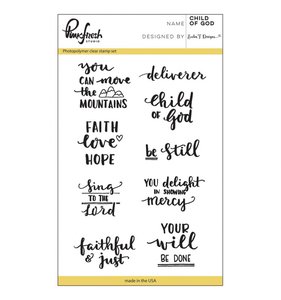 Pinkfresh
STUDIO
Photopolymer clear stamp set
NAME: CHILD OF GOD
DESIGNED BY
you
CAN move
the
MOUNTAINS
deliverer
child
OF GOD
FAITH
love
HOPE
be still
Sing
TO THE
Lord
YOU delight
IN SHOWING
mercy
faithful
& just
YOUR
will
BE DONE
made in the USA